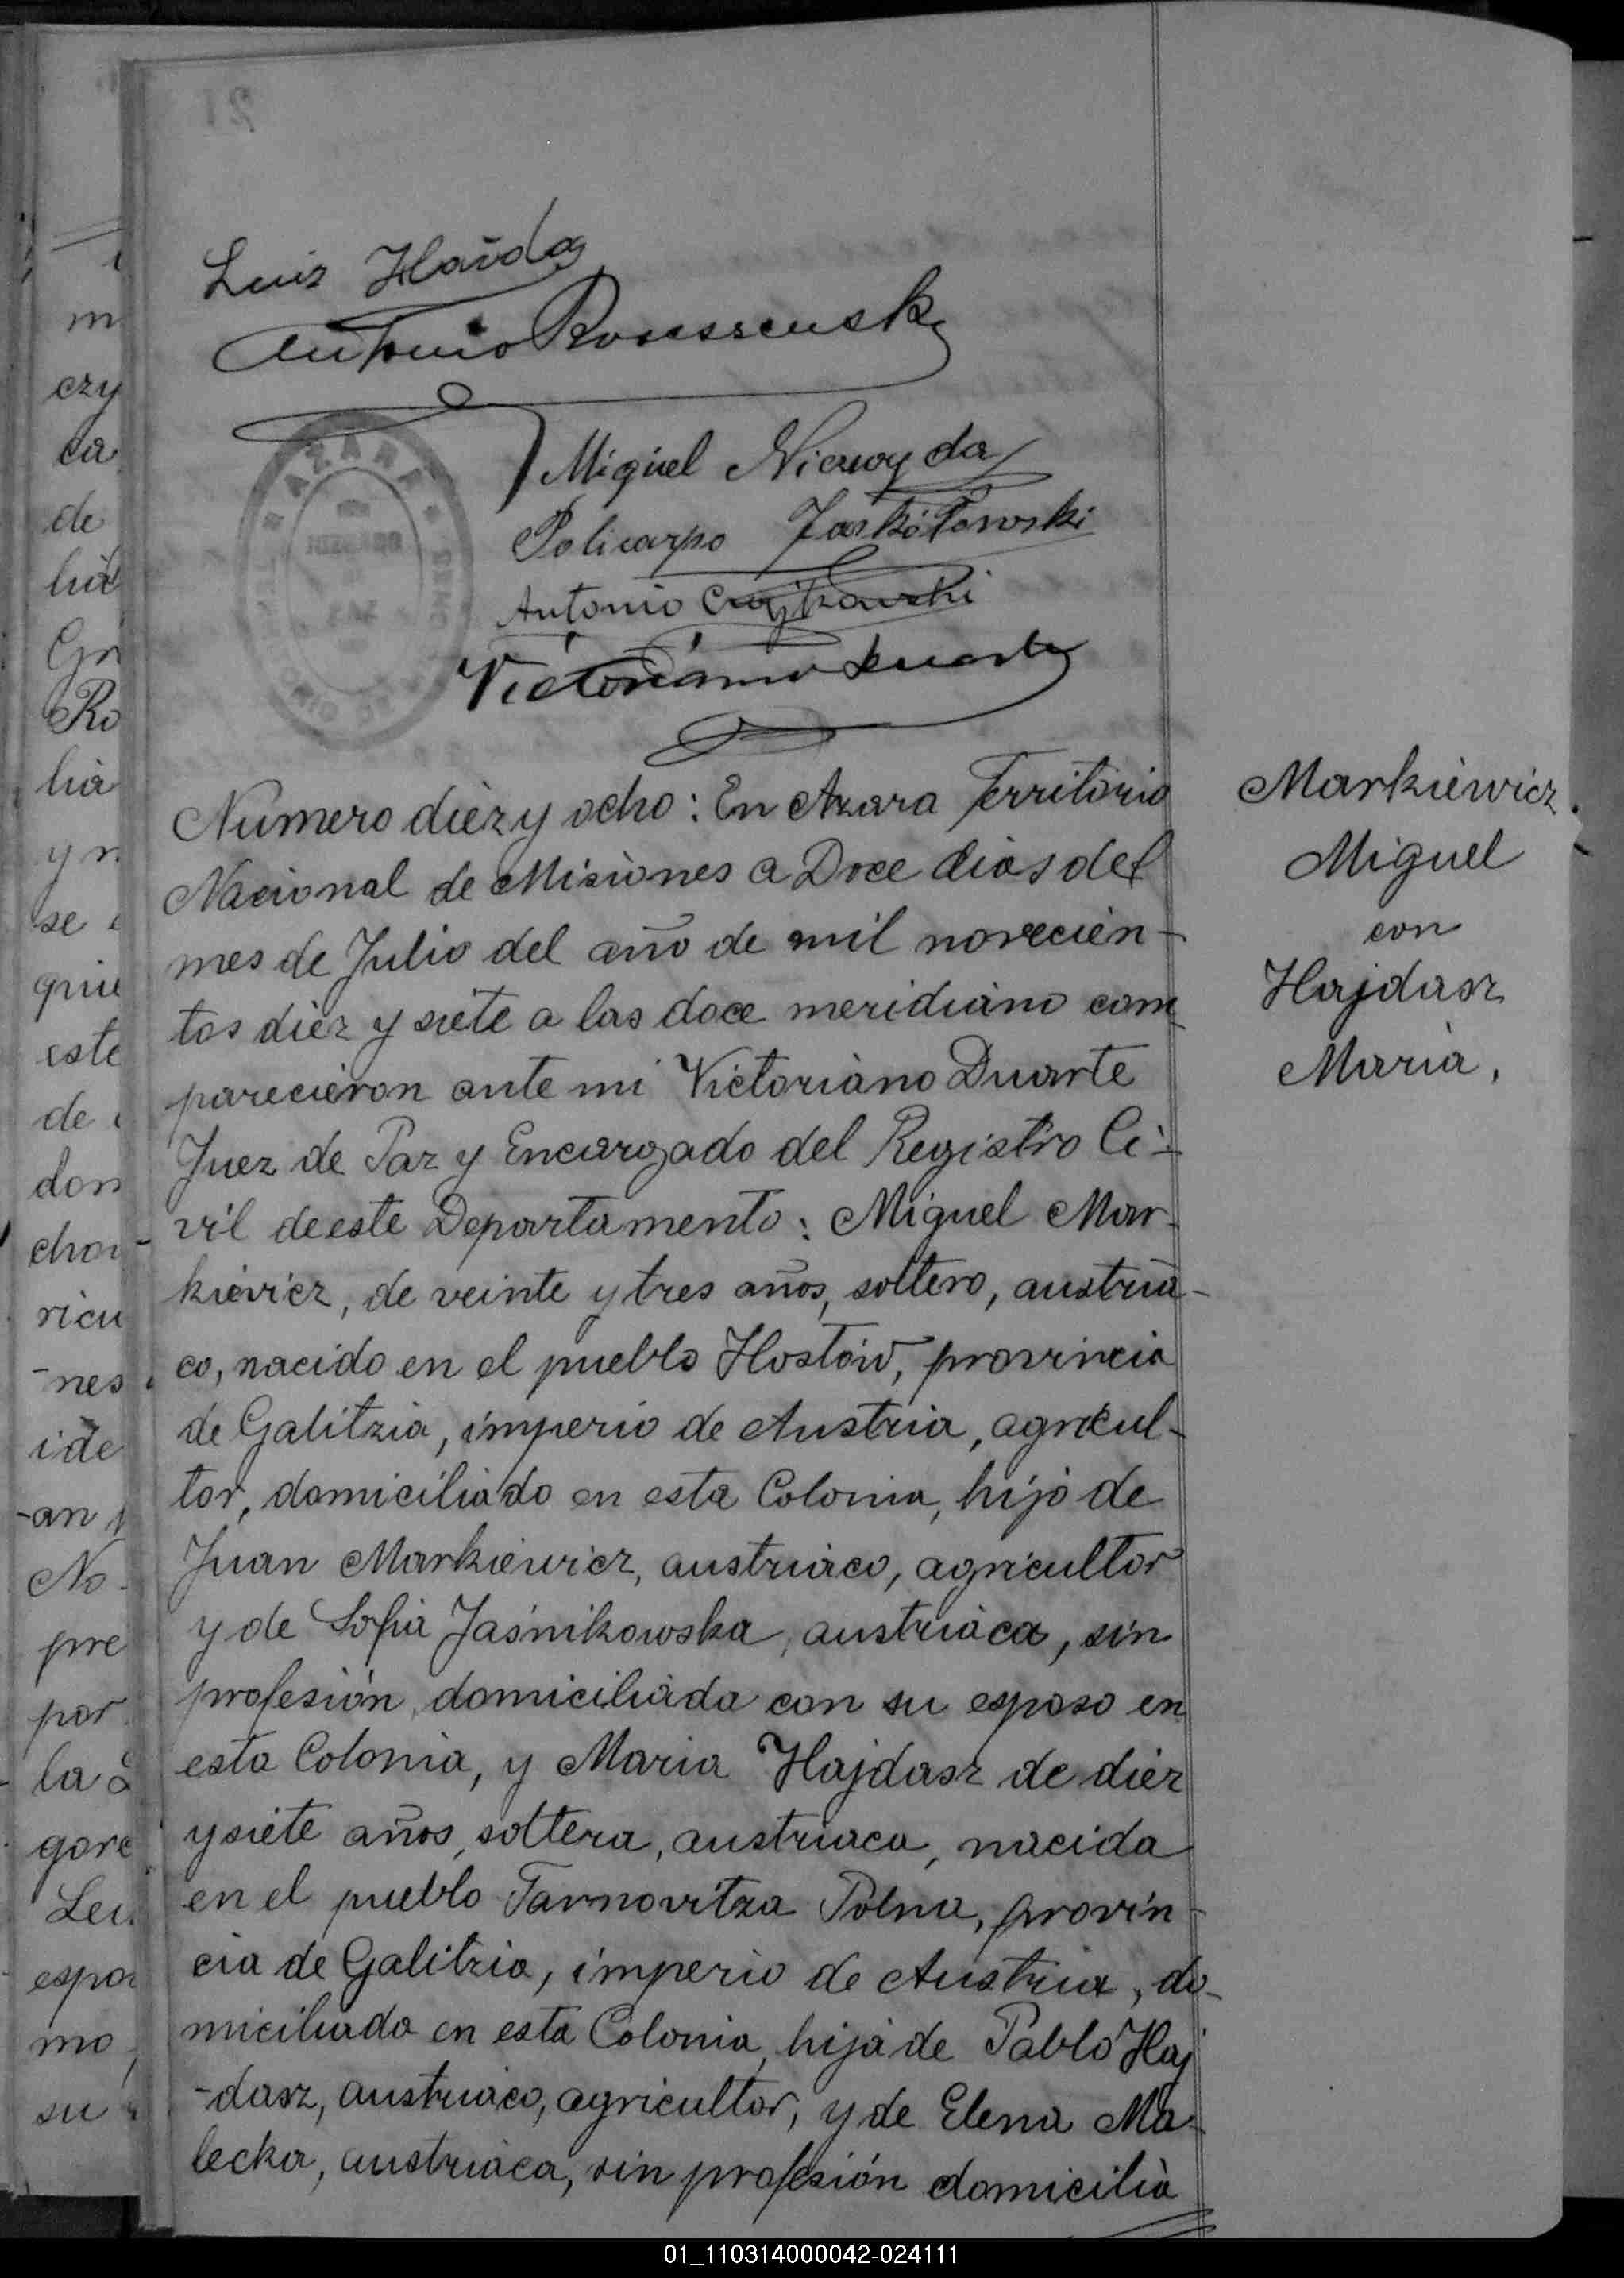 Luis
Antonio
Miguel Niewoyda
Policarpo Jaskółowski
Antonio Czajkowski
Victoriano Duarte
AZARA
Número diez y ocho: En Azara Territorio
Nacional de Misiones a Doce dias del
mes de Julio del año de mil novecien-
tos diez y siete a las doce meridiano com-
parecieron ante mi Victoriano Duarte
Juez de Paz y Encargado del Registro Ci-
vil de este Departamento: Miguel Mar-
kievicz, de veinte y tres años, soltero, austria-
co, nacido en el pueblo Hostów, provincia
de Galitzia, imperio de Austria, agricul-
tor, domiciliado en esta Colonia, hijo de
Juan Markiewicz, austriaco, agricultor
y de Sofia Jaśnikowska, austriaca, sin
profesión, domiciliada con su esposo en
esta Colonia, y Maria Hajdasz de diez
y siete años, soltera, austriaca, nacida
en el pueblo Tarnovitza Polna, provin-
cia de Galitzia, imperio de Austria, do-
miciliada en esta Colonia, hija de Pablo Haj
-dasz, austriaco, agricultor, y de Elena Ma-
lecka, austriaca, sin profesión domicilia
Markiewicz
Miguel
con
Hajdasz
Maria,
m
czy
ca
de
Ro
y n
se
este
de
dom
ricu
-nes
ide
-an
No-
pre
por
la
gore
espo
mo,
su
01_110314000042-024111